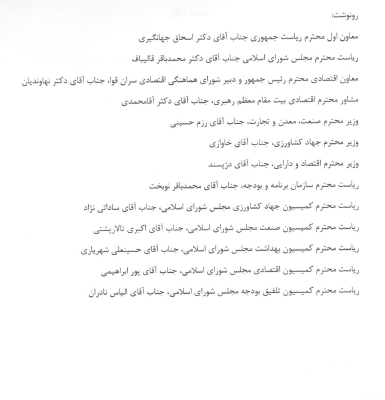 رونوشت:
معاون اول محترم ریاست جمهوری جناب آقای دکتر اسحاق جهانگیری
ریاست محترم مجلس شورای اسلامی جناب آقای دکتر محمدباقر قالیباف
معاون اقتصادی محترم رئیس جمهور و دبیر شورای هماهنگی اقتصادی سران قوا، جناب آقای دکتر نهاوندیان
مشاور محترم اقتصادی بیت مقام معظم رهبری، جناب آقای دکتر آقامحمدی
وزیر محترم صنعت، معدن و تجارت، جناب آقای رزم حسینی
وزیر محترم جهاد کشاورزی، جناب آقای خاوازی
وزیر محترم اقتصاد و دارایی، جناب آقای دژپسند
ریاست محترم سازمان برنامه و بودجه، جناب آقای محمدباقر نوبخت
ریاست محترم کمیسیون جهاد کشاورزی مجلس شورای اسلامی، جناب آقای ساداتی نژاد
ریاست محترم کمیسیون صنعت مجلس شورای اسلامی، جناب آقای اکبری تالارپشتی
ریاست محترم کمیسیون بهداشت مجلس شورای اسلامی، جناب آقای حسینعلی شهریاری
ریاست محترم کمیسیون اقتصادی مجلس شورای اسلامی، جناب آقای پور ابراهیمی
ریاست محترم کمیسیون تلفیق بودجه مجلس شورای اسلامی، جناب آقای الیاس نادران